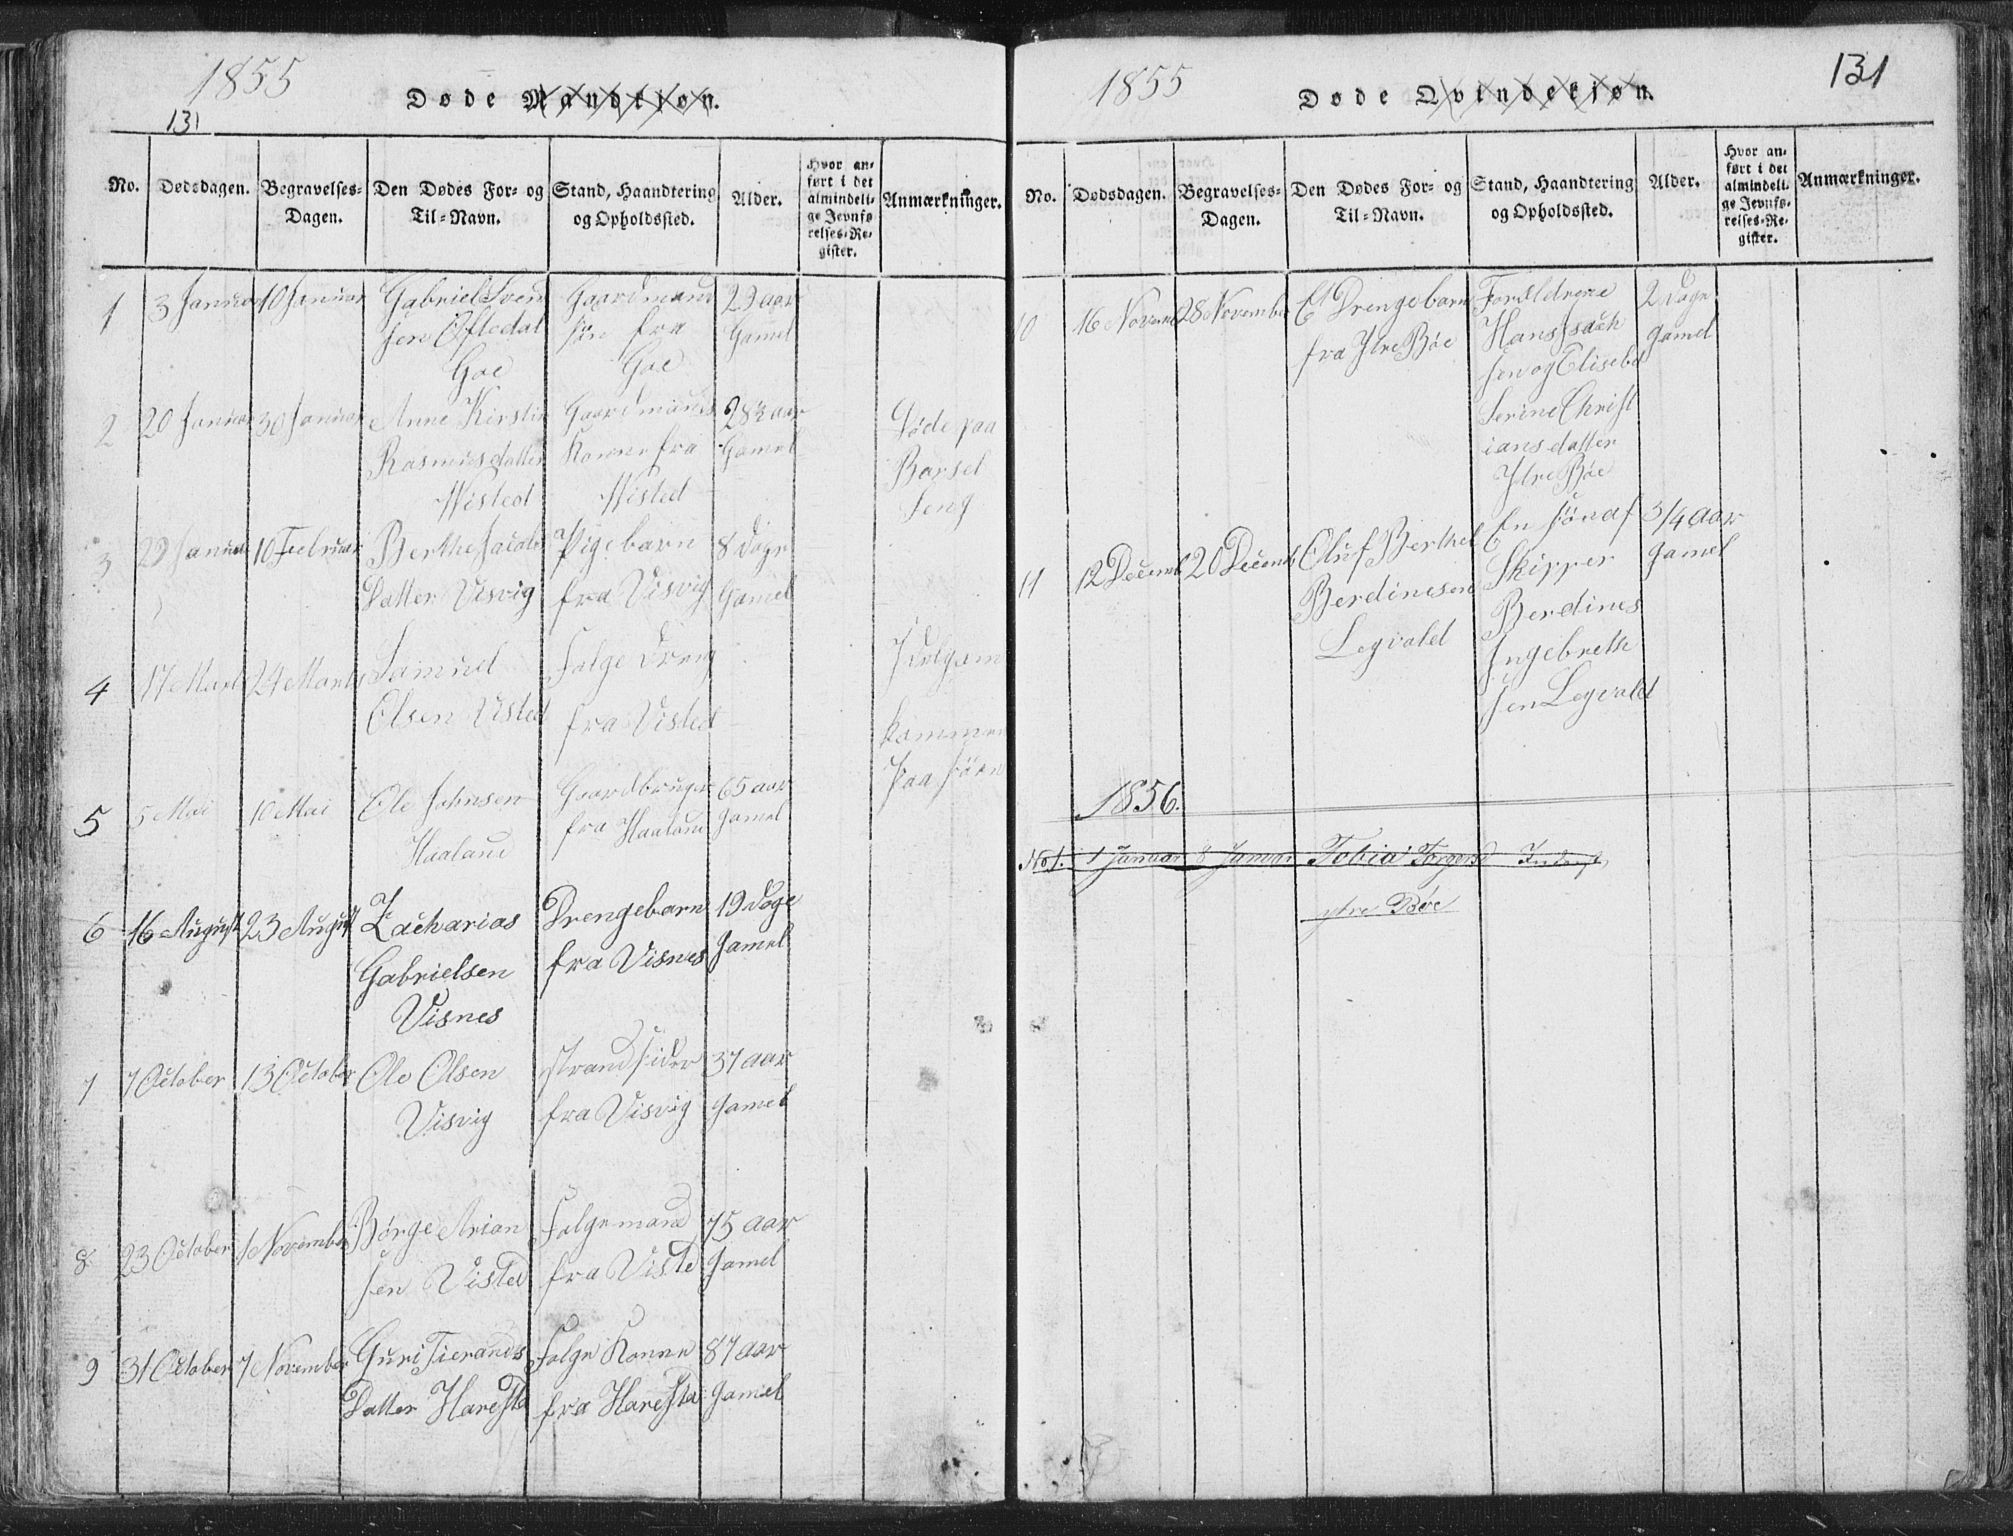 1855
131
Døde Mandkjøn.
No.
Dødsdagen.
Begravelses-
Dagen.
Den Dødes For- og
Til-Navn.
Stand, Haandtering
og Opholdssted.
Alder.
Hvor an-
ført i det
almindeli-
ge Jevnfø-
relses-Re-
gister.
Anmærkninger.
1
3 Januar
10 Januar
Gabriel Svend
sen Ofledal
Goe
Gaardmand
søn fra
Goe
29 aar
Gamel
2
20 Januar
30 Januar
Anne Kirstin
Rasmusdatter
Wisted
Gaardmands
Konne fra
Wisted
28¾ aar
Gamel
Døde paa
Barsel
Seng
3
29 Januar
10 Februar
Berthe Jacobs
Datter Visvig
Pigebarn
fra Visvig
8 Dage
Gamel
4
17 Marts
24 Marts
Samuel
Olsen Visted
Folge Dreng
fra Visted
kommen
paa Søen
5
5 Mai
10 Mai
Ole Johnsen
Haaland
Gaardbruger
fra Haaland
65 aar
Gamel
6
16 August
23 August
Zacharias
Gabrielsen
Visnes
Drengebarn
fra Visnes
19 Dage
Gamel
7
7 October
13 October
Ole Olsen
Visvig
strandsider
fra Visvig
37 aar
Gamel
8
23 October
1 November
Børge Arian
sen Visted
Folgemand
fra Visted
75 aar
Gamel
9
31 October
7 November
Guri Tierands
Datter Haresta
Folge Konne
fra Haresta
87 aar
Gamel
1855
131
Døde Qvindekjøn.
No.
Dødsdagen.
Begravelses-
Dagen.
Den Dødes For- og
Til-Navn.
Stand, Haandtering
og Opholdssted.
Alder.
Hvor an-
ført i det
almindeli-
ge Jevnfø-
relses-Re-
gister.
Anmærkninger.
10
16 Novem
28 November
Et Drengebarn
fra Ytre Bøe
Foreldrene
Hans Isach
sen og Elisebet
Serine Christ
iansdatter
Ytre Bøe
2 Dage
Gamel
11
12 Decemb
20 Decemb
Oluf Berthel
Berdinesen
Legvald
En søn af
Skipper
Berdines
Ingebret
sen Legvald
3/4 aar
Gamel
1856.
No 1.
1 Januar
8 Januar
Tobia Torgers
ytre Bøe
Inderst